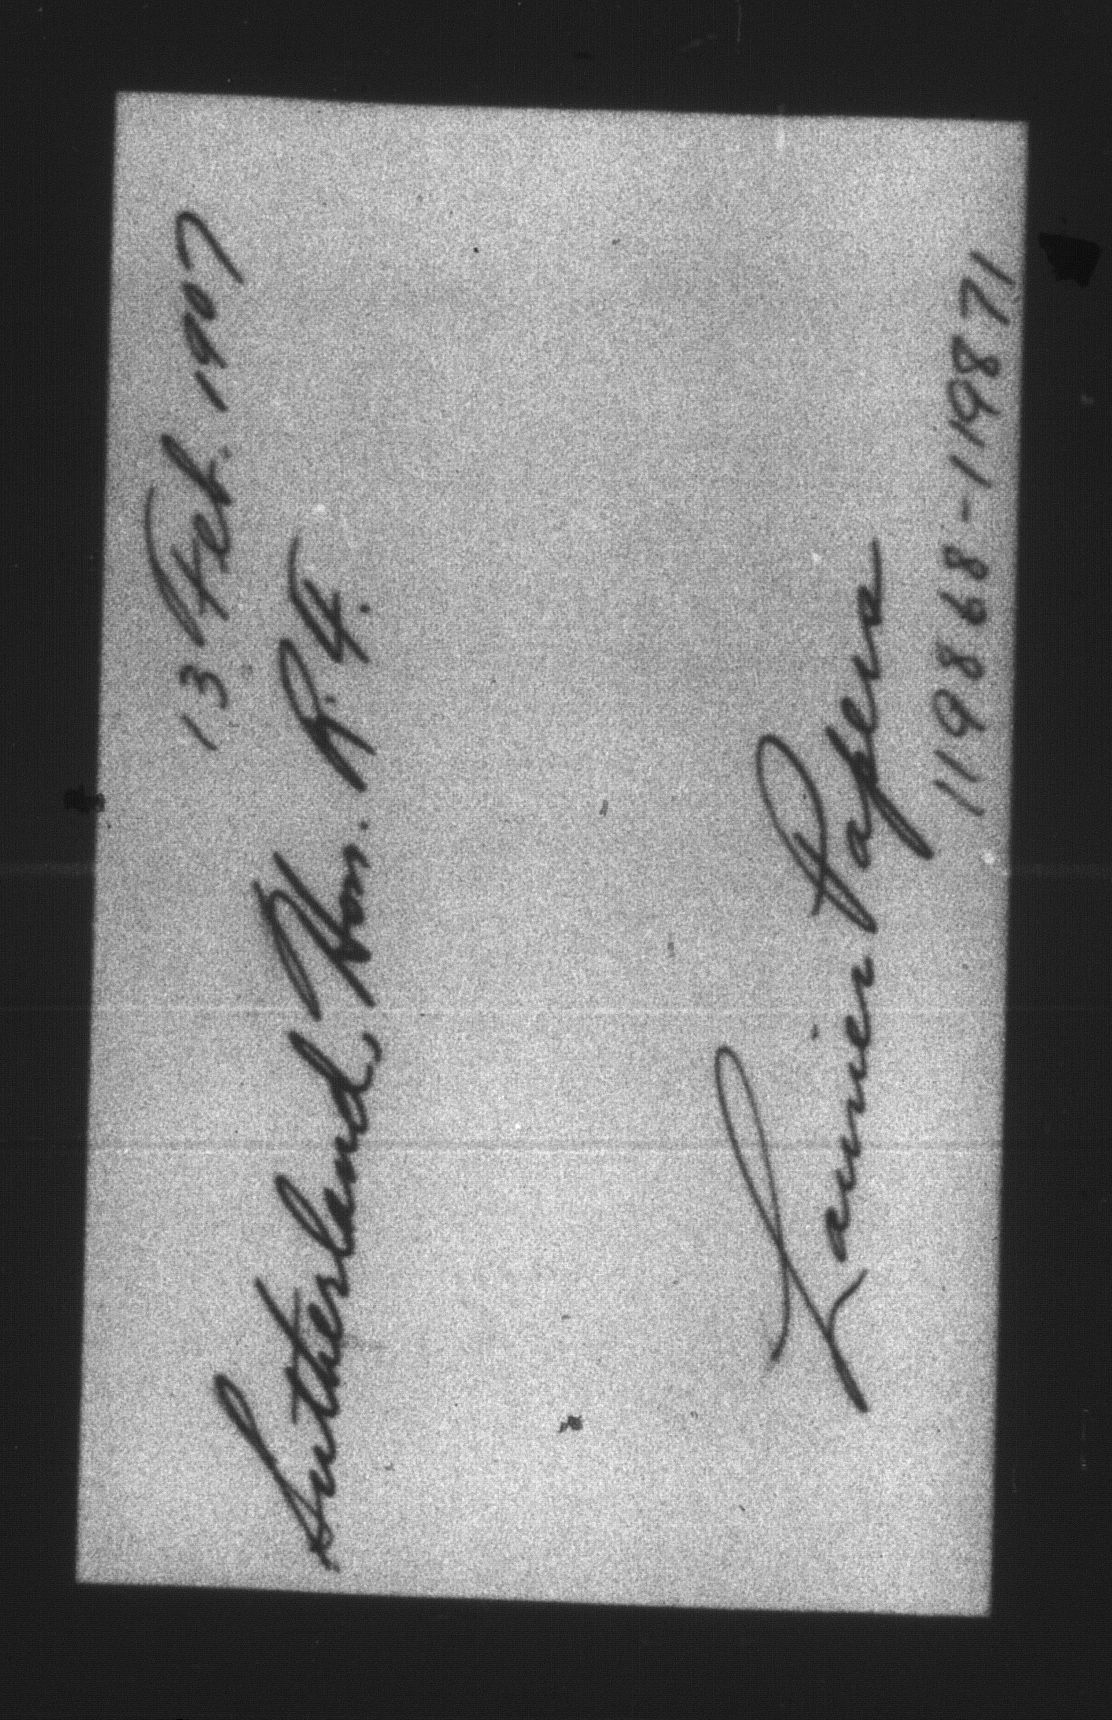 13 Feb. 1907
Sutherland, Hon. R.F.
Laurier Papers
119868-119871